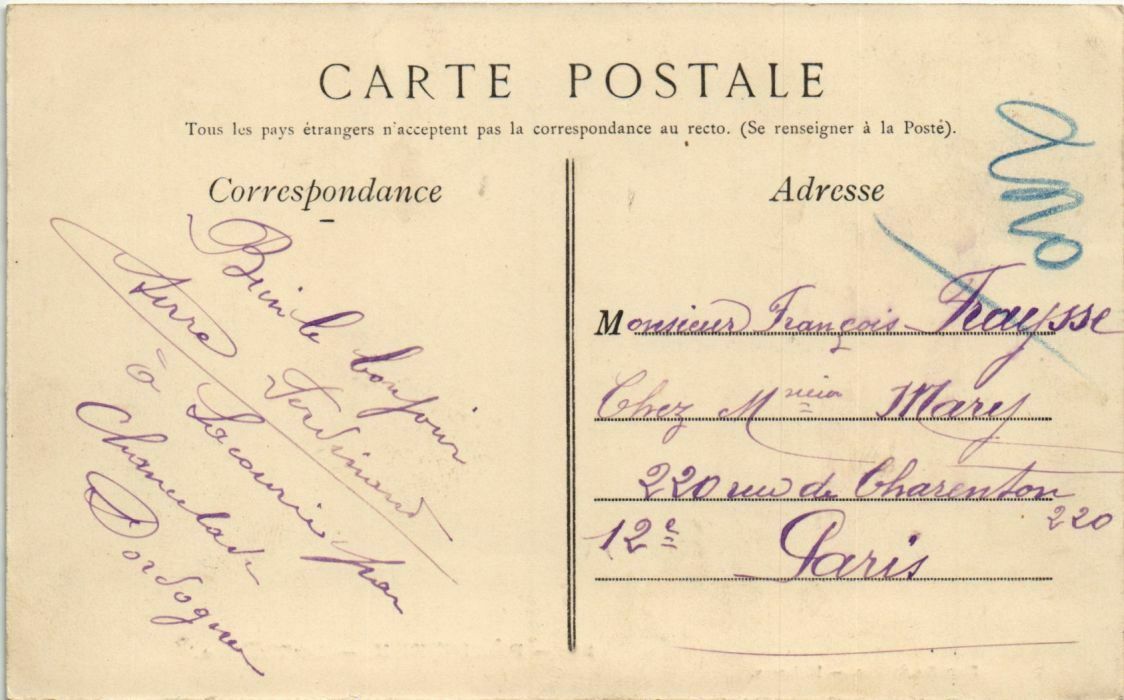 CARTE POSTALE
Tous les pays étrangers n'acceptent pas la correspondance au recto. (Se renseigner à la Poste).
Correspondance
Bien le bonjour
Ferdinand
à par
Chancelade
Dordogne
Adresse
Monsieur François Fraysse
Chez Mr Mary
220 rue de Charenton
220
12e Paris